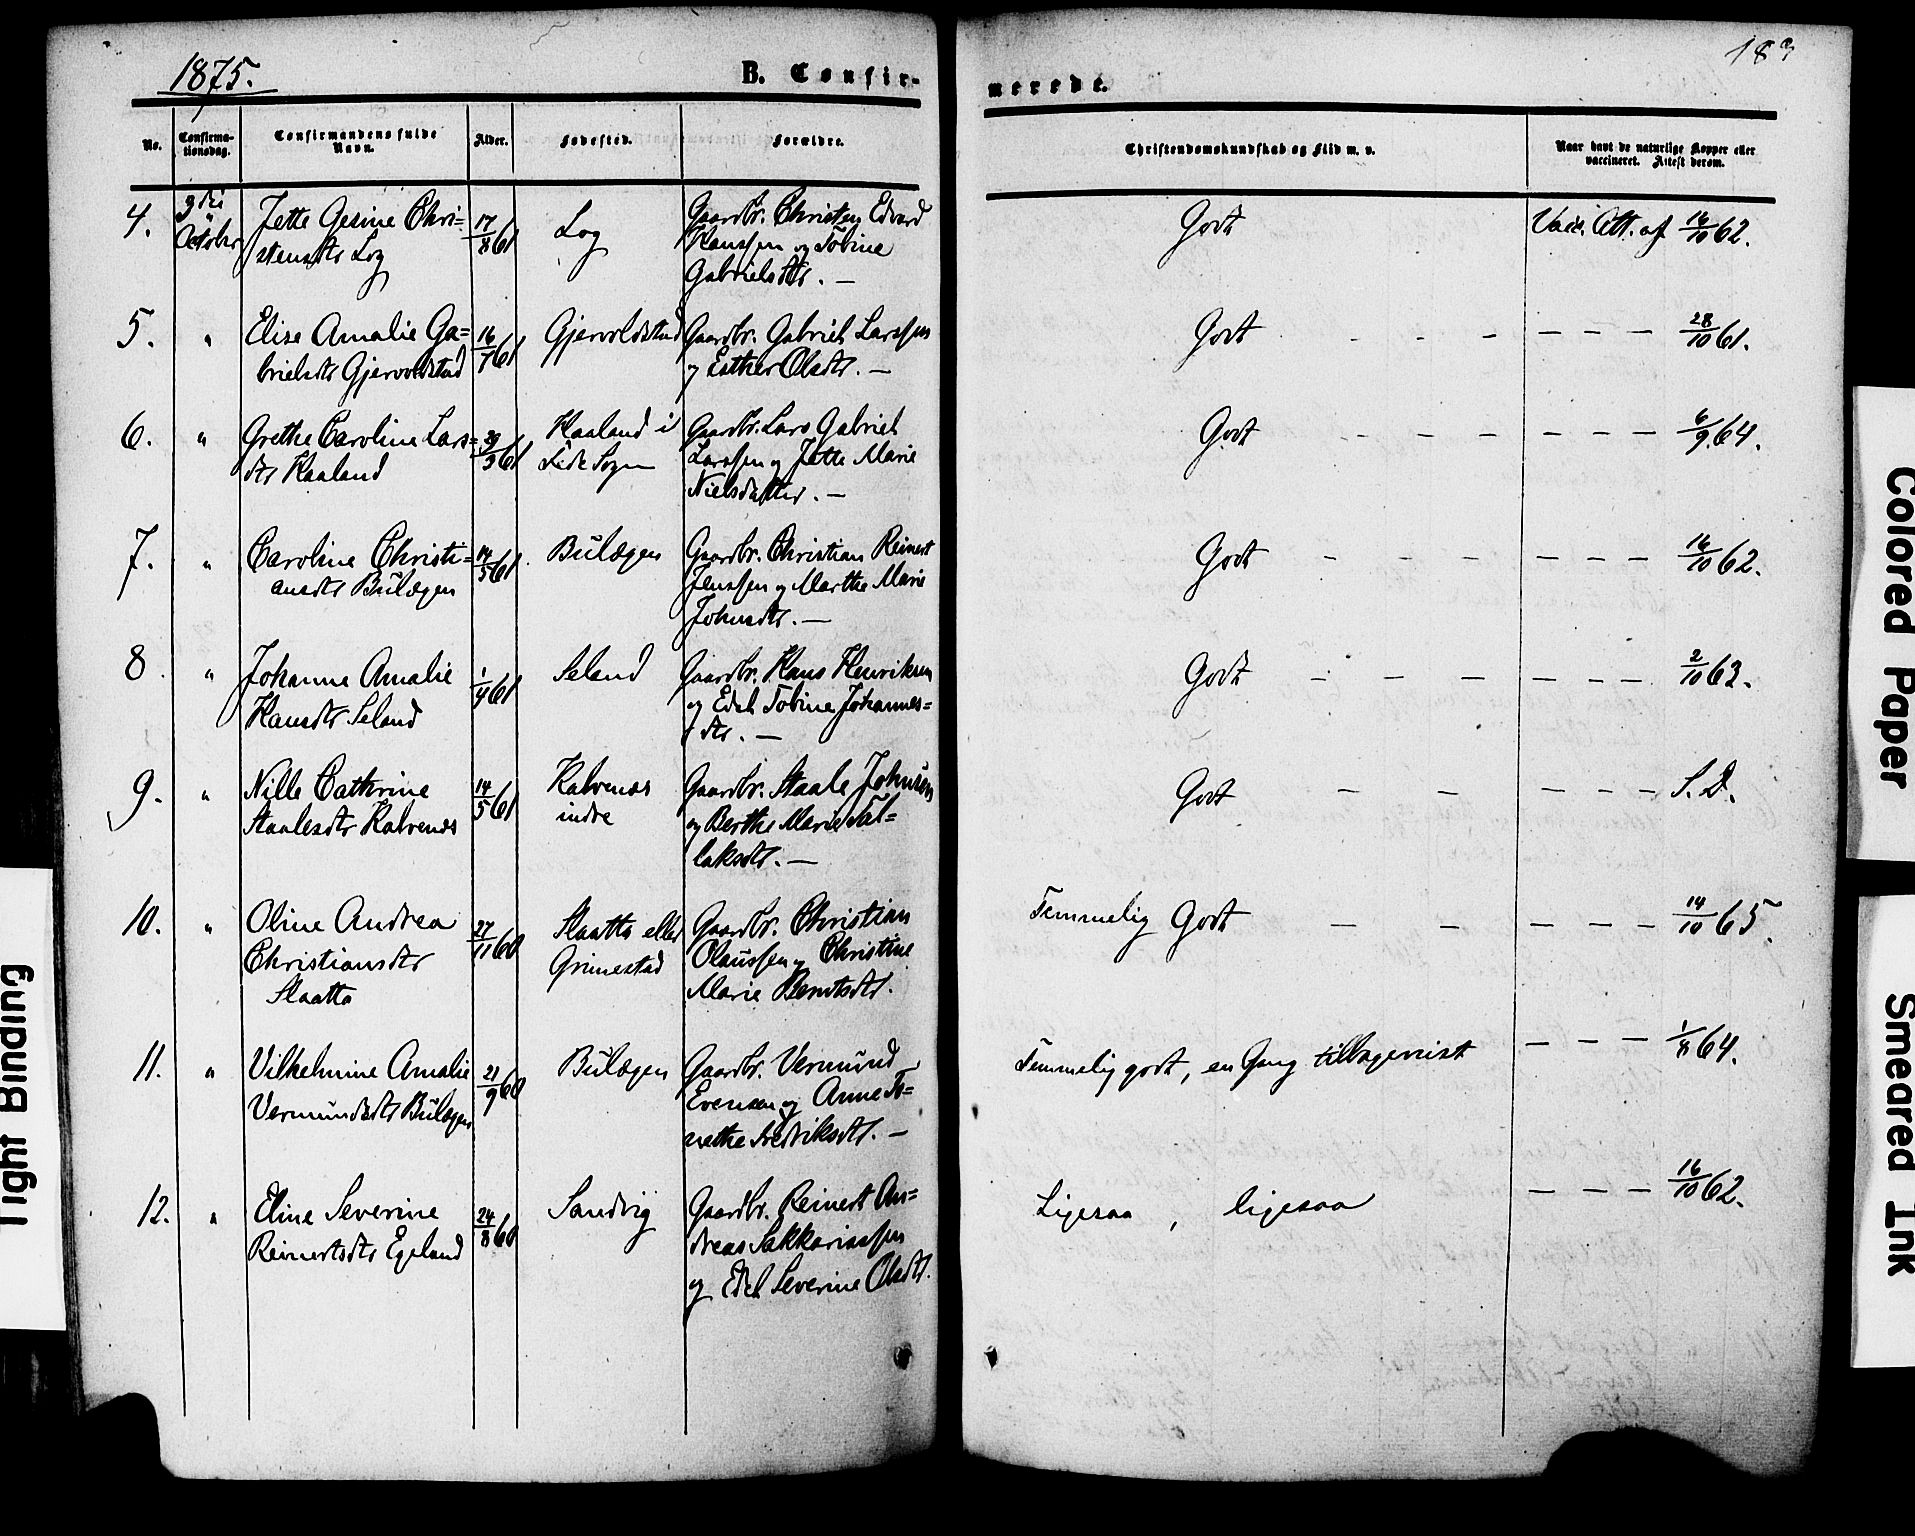 1875.
B. Confir-
merede.
No.
Confirma-
tionsdag.
Confirmandens fulde
Navn.
Alder.
Fødested.
Forældre.
Christendomskundskab og Flid m. v.
Naar havt de naturlige Kopper eller
vaccineret. Attest derom.
4.
3die
October
Jette Gesine Chri=
stensdtr Log
17/8 61
Log
Gaardbr. Christen Edvard
Hanssen og Tobine
Gabrielsdtr. —
Godt
Vacc. Att. af 16/10 62.
5.
"
Elise Amalie Ga=
brielsdtr Gjervoldstad
16/7 61
Gjervoldstad
Gaardbr. Gabriel Larssen
og Esther Olsdtr. —
Godt - - - — — — 28/10 61.
6.
"
Grethe Caroline Lars=
dtr Haaland
61
Haaland i
Sogn
Gaardbr. Lars Gabriel
Larssen og Jette Marie
Nielsdatter. —
Godt - - - — — — 6/9 64.
7.
"
Caroline Christi=
ansdtr Bülægen
14/5 61
Bülægen
Gaardbr. Christian Reinert
Jenssen og Marthe Marie
Johnsdtr. —
Godt - - - — — — 16/10 62.
8
"
Johanne Amalie
Hansdtr Seland
1/4 61
Seland
Gaardbr. Hans Henriksen
og Edel Tobine Johannes=
dtr. —
Godt - - - — — — 2/10 63.
9.
"
Nille Cathrine
Staalesdtr Kalvenes
14/5 61
Kalvenes
indre
Gaardbr. Staale Johnsen
og Berthe Marie Tal=
laksdtr. —
Godt — — — — — S. D.
10.
"
Oline Andrea
Christiansdtr
Slaatta
27/11 60
Slaatta eller
Grimestad
Gaardbr. Christian
Olaussen og Christine
Marie Berntsdtr.
Temmelig Godt — — — — — 14/10 65.
11.
"
Vilhelmine Amalie
Vermundsdtr Bülægen
21/9 60
Bülægen
Gaardbr. Vermund
Evensen og Anne To=
nethe Fredriksdtr. —
Temmelig godt, en Gang tilbageviist
— — — 1/8 64.
12.
"
Eline Severine
Reinertsdtr Egeland
24/8 60
Sandvig
Gaardbr. Reinert An=
dreas Sakkariassen
og Edel Severine Olsdtr.
Ligesaa, ligesaa
— — — 16/10 62.
Tight Binding
Colored Paper
Smeared Ink